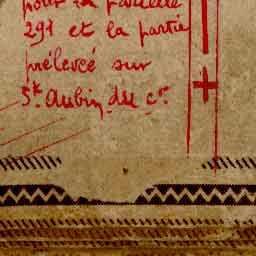 pour la parcelle
291 et la partie
prélevée sur
St. Aubin du c